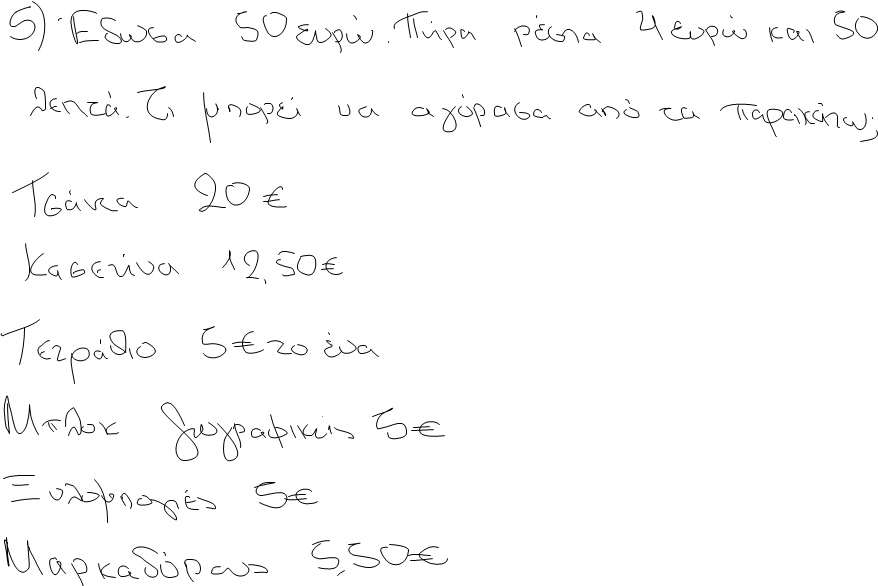 5) Έδωσα 50 ευρώ. Πήρα ρέστα 4 ευρώ και 50
λεπτά. Τι μπορεί να αγόρασα από τα παρακάτω;
Τσάντα 20€
Κασετίνα 12,50€
Τετράδιο 5€ το ένα
Μπλοκ ζωγραφικής 5€
Ξυλομπογιές 5€
Μαρκαδόρους 5,50€